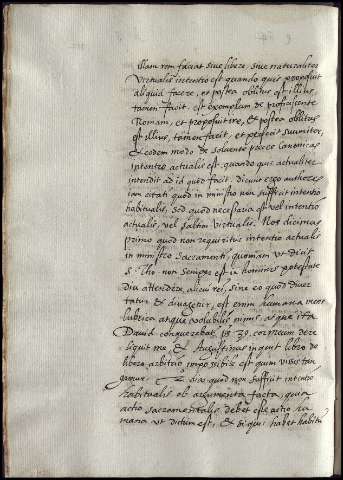 illam rem faciat siue libere, siue naturaliter
Virtualis intentio est quando quis proposuit
aliquid facere, et postea oblitus est illius,
tamen facit. est exemplum de proficiscente
Romam, et proposuit ire, et postea oblitus
est illius, tamen facit, et perficit suum iter,
& eodem modo de soluente horas canonicas
intentio actualis est quando quis actualiter
intendit ad id quod facit. dicunt ergo authores
iam citati quod in ministro non sufficit intentio
habitualis, sed quod necessaria est vel intentio
actualis, vel saltim virtualis. Nos dicimus
primo quod non requiritur intentio actualis
in ministro Sacramenti, quoniam ut dicit
s. Tho non semper est in hominis potestate
diu attendere alicui rei, sine eo quod diuer
tatur & diuagetur, est enim humana mens
lubrica atque volabilis nimis, atque ita
Dauid conquerebat ps 39. cor meum dere
liquit me, & Augustinus inquit libro de
libero arbitrio impossibile est quin visis tan
gamur. 2 dicimus quod non sufficit intentio
habitualis ob argumenta facta, quia
actio sacramentalis debet esse actio hu
mana ut dictum est, & si quis habet habitu